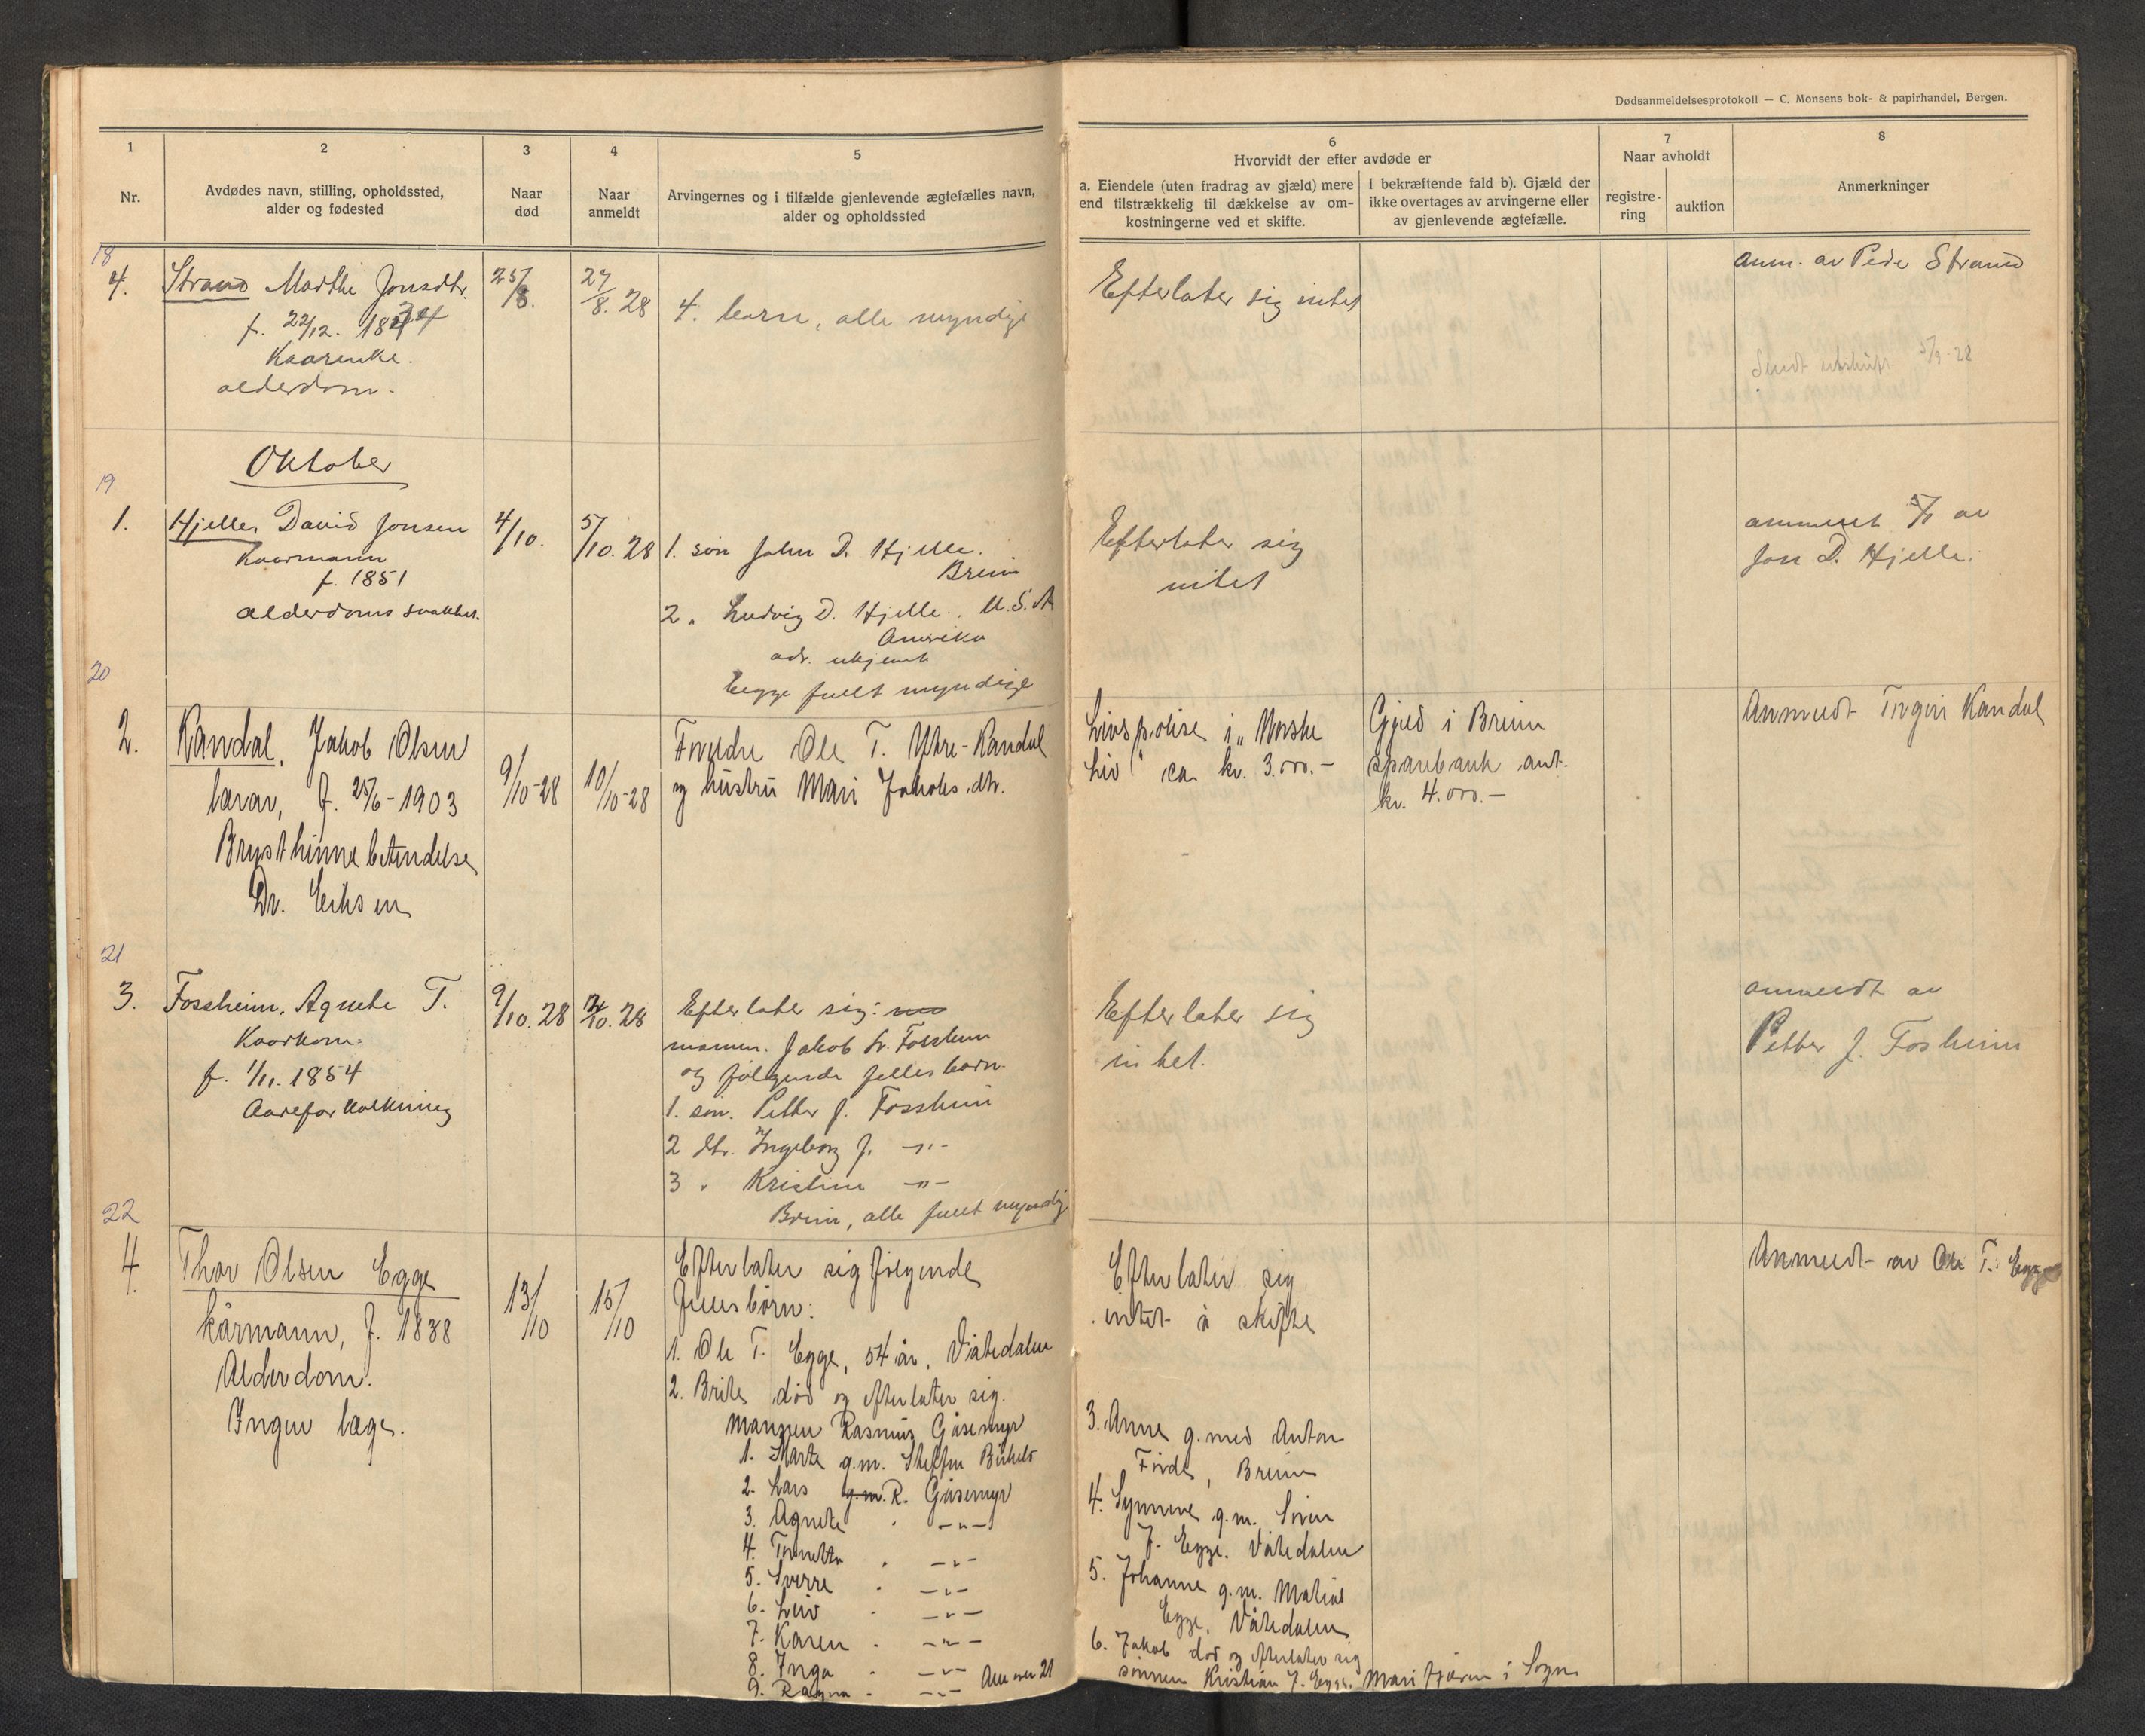 Dødsanmeldelsesprotokoll — C. Monsens bok- & papirhandel, Bergen.
1
Nr.
2
Avdødes navn, stilling, opholdssted,
alder og fødested
3
Naar
død
4
Naar
anmeldt
5
Arvingernes og i tilfælde gjenlevende ægtefælles navn,
alder og opholdssted
6
Hvorvidt der efter avdøde er
a. Eiendele (uten fradrag av gjæld) mere
end tilstrækkelig til dækkelse av om-
kostningerne ved et skifte.
I bekræftende fald b). Gjæld der
ikke overtages av arvingerne eller
av gjenlevende ægtefælle.
7
Naar avholdt
registre-
ring
auktion
8
Anmerkninger
18
4.
Strand Marthe Jonsdtr.
f. 22/12. 1834
Kaarenke.
alderdom.
25/8.
27/8. 28
4. barn, alle myndige
Efterlater sig intet
anm. av Peder Strand
Sendt utskrift 5/9-28
Oktober
19
1.
Hjelle, David Jonsen
Kaarmann
f. 1851
alderdoms svakhet.
4/10.
5/10. 28
1. søn John D. Hjelle.
Breim
2. " Ludvig D. Hjelle. U.S.A
Amerika
adr. ukjent
begge fullt myndige
Efterlater sig
intet
anmeldt 5/ av
Jon D. Hjelle.
20
2.
Kandal, Jakob Olsen
lærar, f. 25/6-1903
Brysthinnebetendelse
Dr. Eriksen
9/10-28
10/10-28
Foreldre Ole T. Ytre-Kandal
og hustru Mari Jakobs.dtr.
Livspolise i "Norske
Liv" ca. kr. 3.000.-
Gjeld i Breim
sparebank ant.
kr. 4.000.-
Anmeldt Kandal
21
3.
Fossheim, Agnete T.
Kaarkone
f. 1/11. 1854
Aareforkalkning
9/10. 28
/10. 28
Efterlater sig:
mannen. Jakob Fossheim
og følgende fellesbarn.
1. søn. Petter J. Fossheim
2 dtr. Ingeborg J. -"-
3 " Kristine -"-
Breim, alle fullt myndig
Efterlater sig
intet.
anmeldt av
Petter J. Fosheim
22
4.
Thor Olsen Egge
kårmann, f. 1838
Alderdom.
Ingen læge.
13/10
15/10
Efterlater sig følgende
fellesbørn:
1. Ole T. Egge, 54 år, Våtedalen
2. Brite død og efterlater sig.
mannen Rasmus Gåsemyr
1. Marta g.m. Steffen
2. Lars g.m. R. Gåsemyr
3. Agnete " -"-
4. Tomette " -"-
5. Sverre " -"-
6. Leiv " -"-
7. Karen " -"-
8. Inga " -"-
9. Ragna " -"- Alle over 21
Efterlater sig
intet å skifte
3. Anne g. med Anton
Førde, Breim
4. Synneve g.m. Søren
J. Egge. Våtedalen
5. Johanne g.m. Matias
Egge, Våtedalen
6. Jakob død og efterlater sig
sønnen Kristian J. Egge, i Sogn
Anmeldt av Ole T. Egge